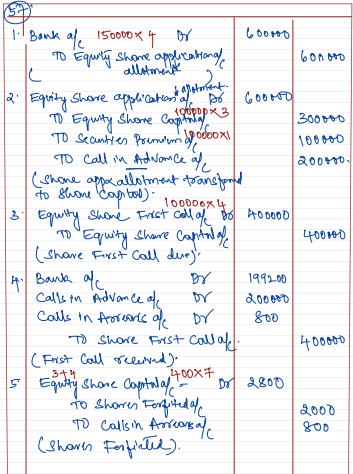 57
1. Bank a/c 150000 x 4 Dr 600000
To Equity Share application a/c 600000
( allotment )
2. Equity Share application & allotment a/c Dr 600000
To Equity Share Capital a/c 100000 x 3 300000
To Securities Premium a/c 100000 x 1 100000
To Call in Advance a/c 200000
(Share appx allotment transferred
to Share Capital).
100000 x 4
3. Equity Share First Call a/c Dr 400000
To Equity Share Capital a/c 400000
(Share First Call due).
4. Bank a/c Dr 199200
Calls in Advance a/c Dr 200000
Calls in Arrears a/c Dr 800
To Share First Call a/c. 400000
(First Call received).
3+4 400 x 7
5 Equity Share Capital a/c - Dr 2800
To Shares Forfeited a/c 2000
To Calls in Arrears a/c 800
(Shares Forfieted).